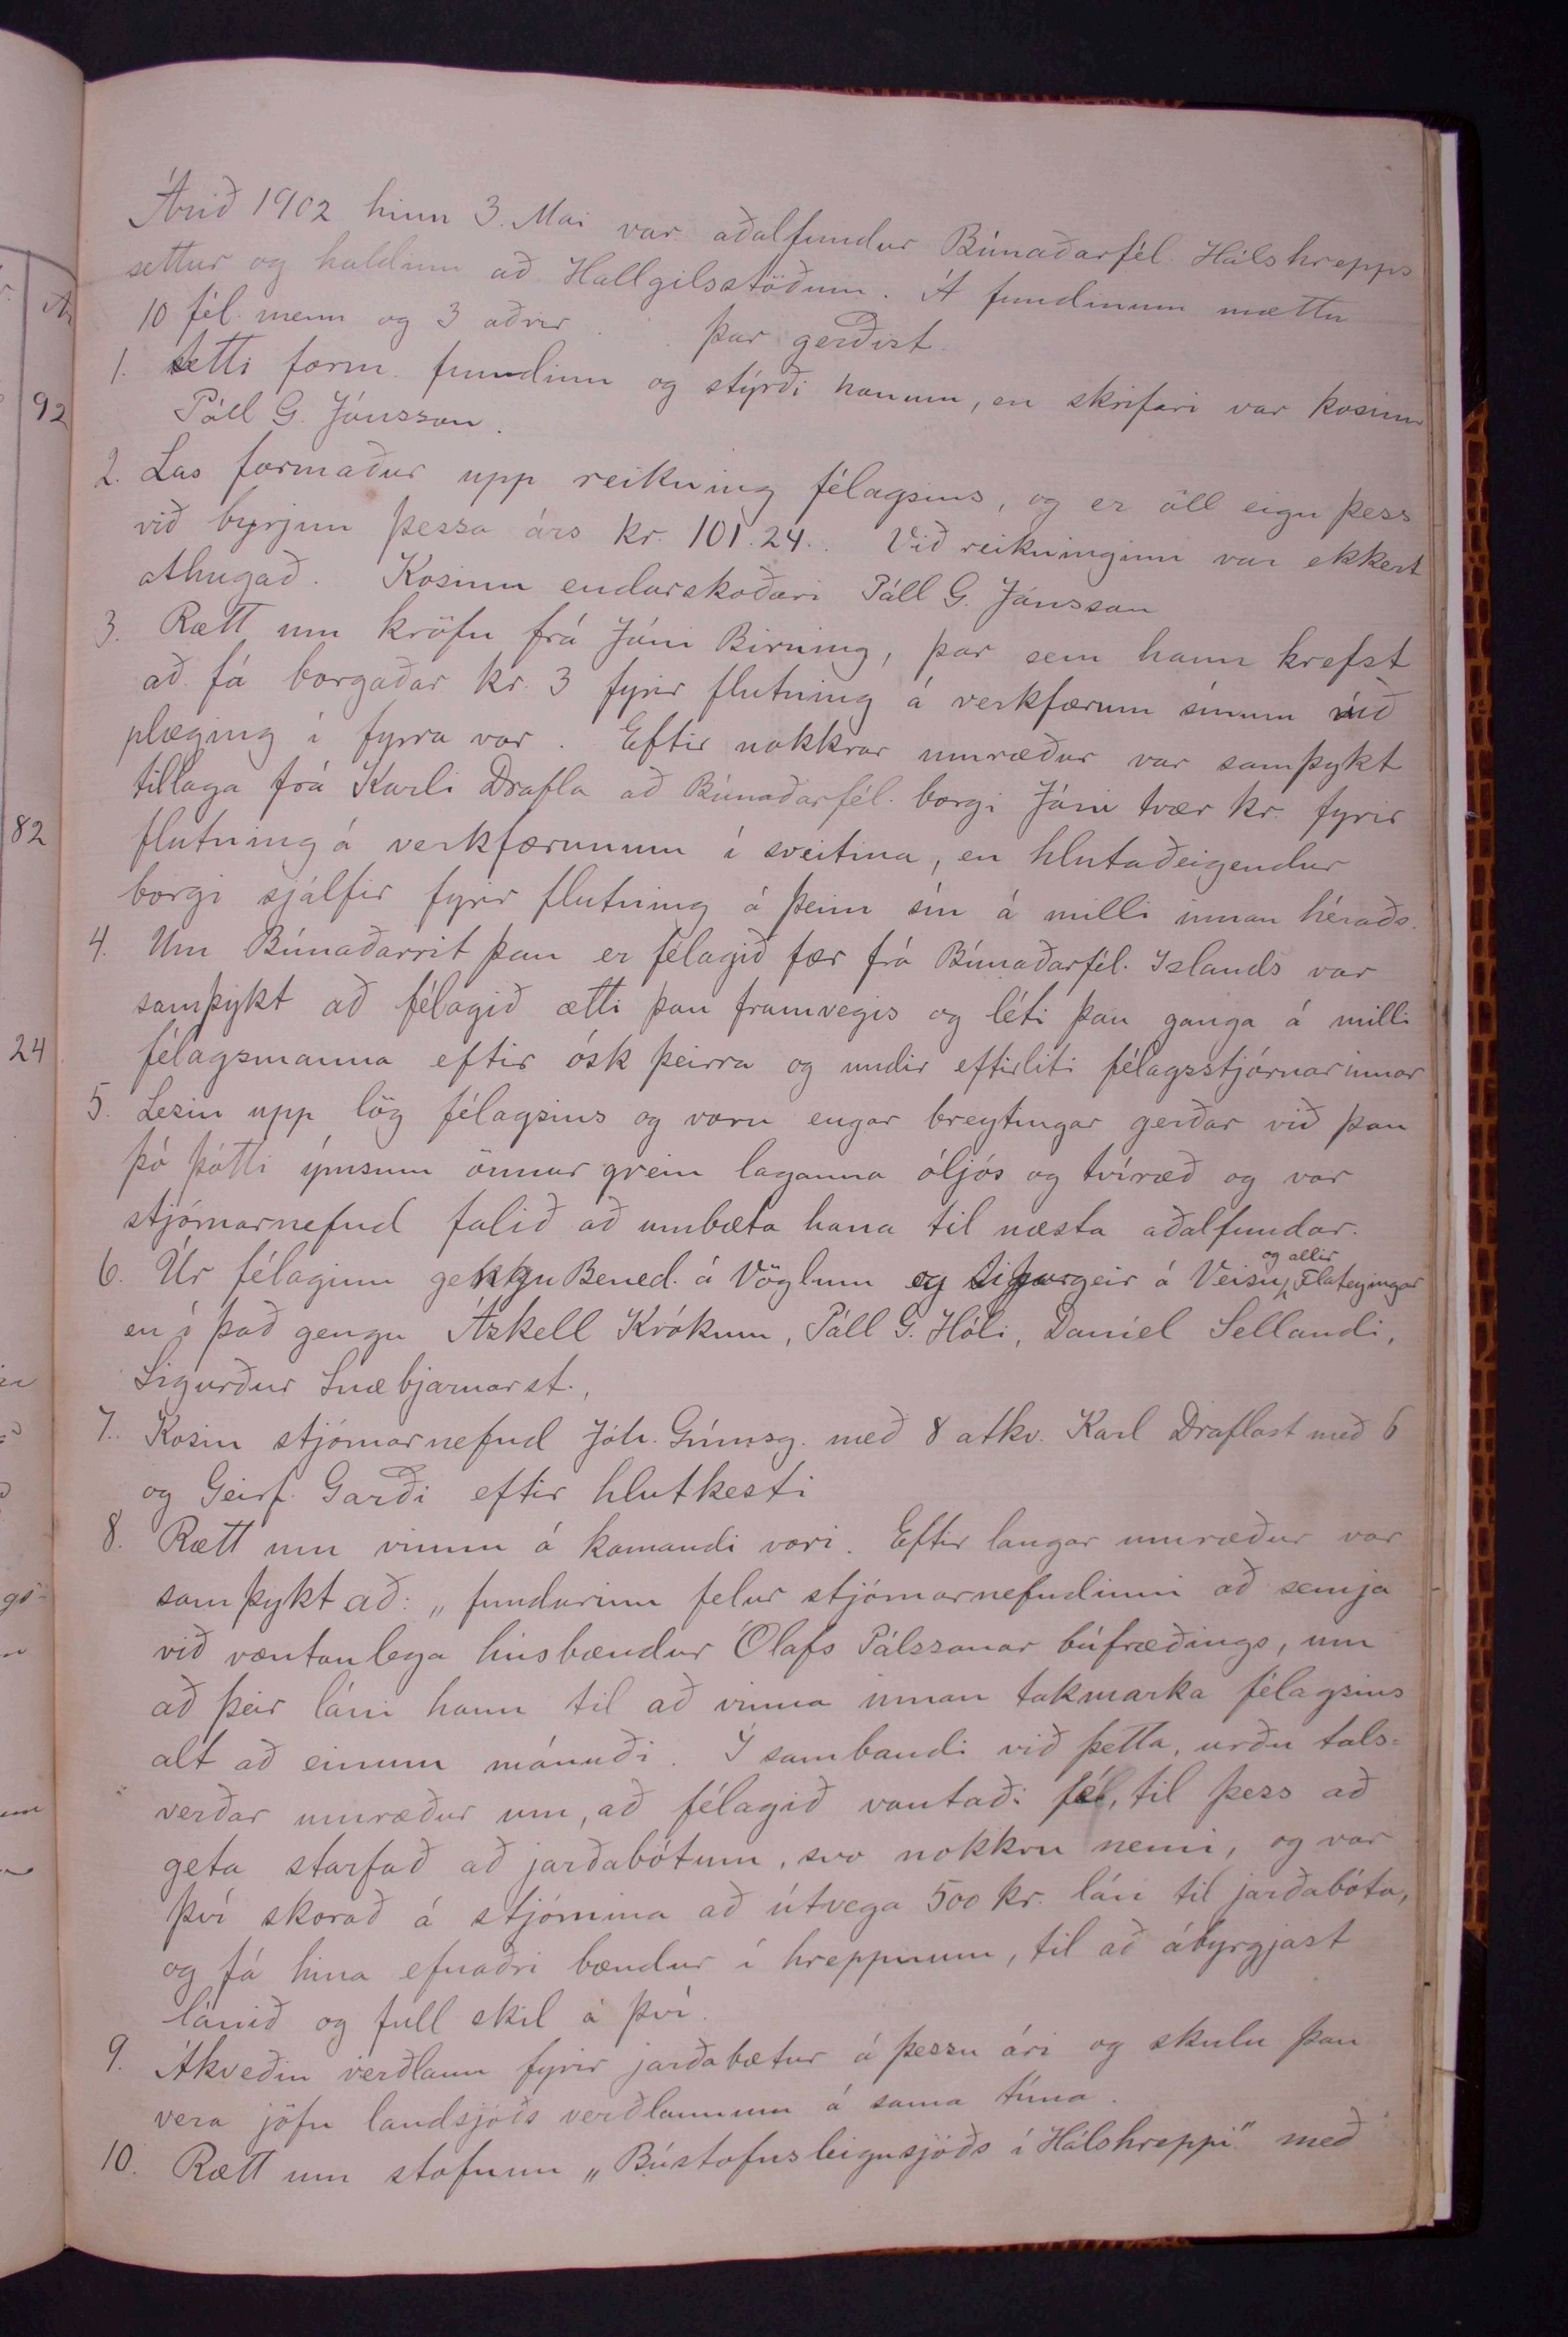 Árið 1902 hinn 3. Mai var aðalfundur Búnaðarfél. Hálshrepps
settur og haldinn að Hallgilsstöðum. Á fundinum mættu
10 fél. menn og 3 aðrir. Þar gerðist.
1. Setti form. fundinn og stýrði honum, en skrifari var kosinn
Páll G. Jónsson.
2. Las formaður upp reikning félagsins, og er öll eign þess
við byrjun þessa árs kr. 101.24. Við reikninginn var ekkert
athugað. Kosinn endurskoðari Páll G. Jónsson
3. Rætt um kröfu frá Jóni Birning, þar sem hann krefst
að fá borgaðar kr. 3 fyrir flutning á verkfærum sínum við
plæging í fyrra vor. Eftir nokkrar umræður var samþykt
tillaga frá Karli Drafla að Búnaðarfél. borgi Jóni tvær kr. fyrir
flutning á verkfærunum í sveitina, en hlutaðeigendur
borgi sjálfir fyrir flutning á þeim sín á milli innan héraðs.
4. Um Búnaðarrit þau er félagið fær frá Búnaðarfél. Islands var
samþykt að félagið ætti þau framvegis og léti þau ganga á milli
félagsmanna eftir ósk þeirra og undir eftirliti félagsstjórnarinnar
5. Lesin upp lög félagsins og voru engar breytingar gerðar við þau
þó þótti ýmsum önnur grein laganna óljós og tvíræð og var
stjórnarnefnd falið að umbæta hana til næsta aðalfundar.
6. Úr félaginu gengu Bened. á Vöglum og Sigurgeir á Veisu, og allir Flateyingar
en í það gengu Áskell Krókum, Páll G. Hóli, Daníel Sellandi,
Sigurður Snæbjarnarst.,
7. Kosin stjórnarnefnd Jóh. Grímsg. með 8 atkv. Karl Draflast með 6
og Geirf. Garði eftir hlutkesti
8. Rætt um vinnu á komandi vori. Eftir langar umræður var
samþykt að: „fundurinn felur stjórnarnefndinni að semja
við væntanlega húsbændur Ólafs Pálssonar búfræðings, um
að þeir láni hann til að vinna innan takmarka félagsins
alt að einum mánuði. Í sambandi við þetta, urðu tals-
verðar umræður um, að félagið vantaði fé, til þess að
geta starfað að jarðabótum, svo nokkru nemi, og var
því skorað á stjórnina að útvega 500 kr. lán til jarðabóta,
og fá hina efnaðri bændur í hreppnum, til að ábyrgjast
lánið og full skil á því.
9. Ákveðin verðlaun fyrir jarðabætur á þessu ári og skulu þau
vera jöfn landsjóðs verðlaunum á sama tíma.
10. Rætt um stofnun „Bústofnsleigusjóðs í Hálshreppi" með